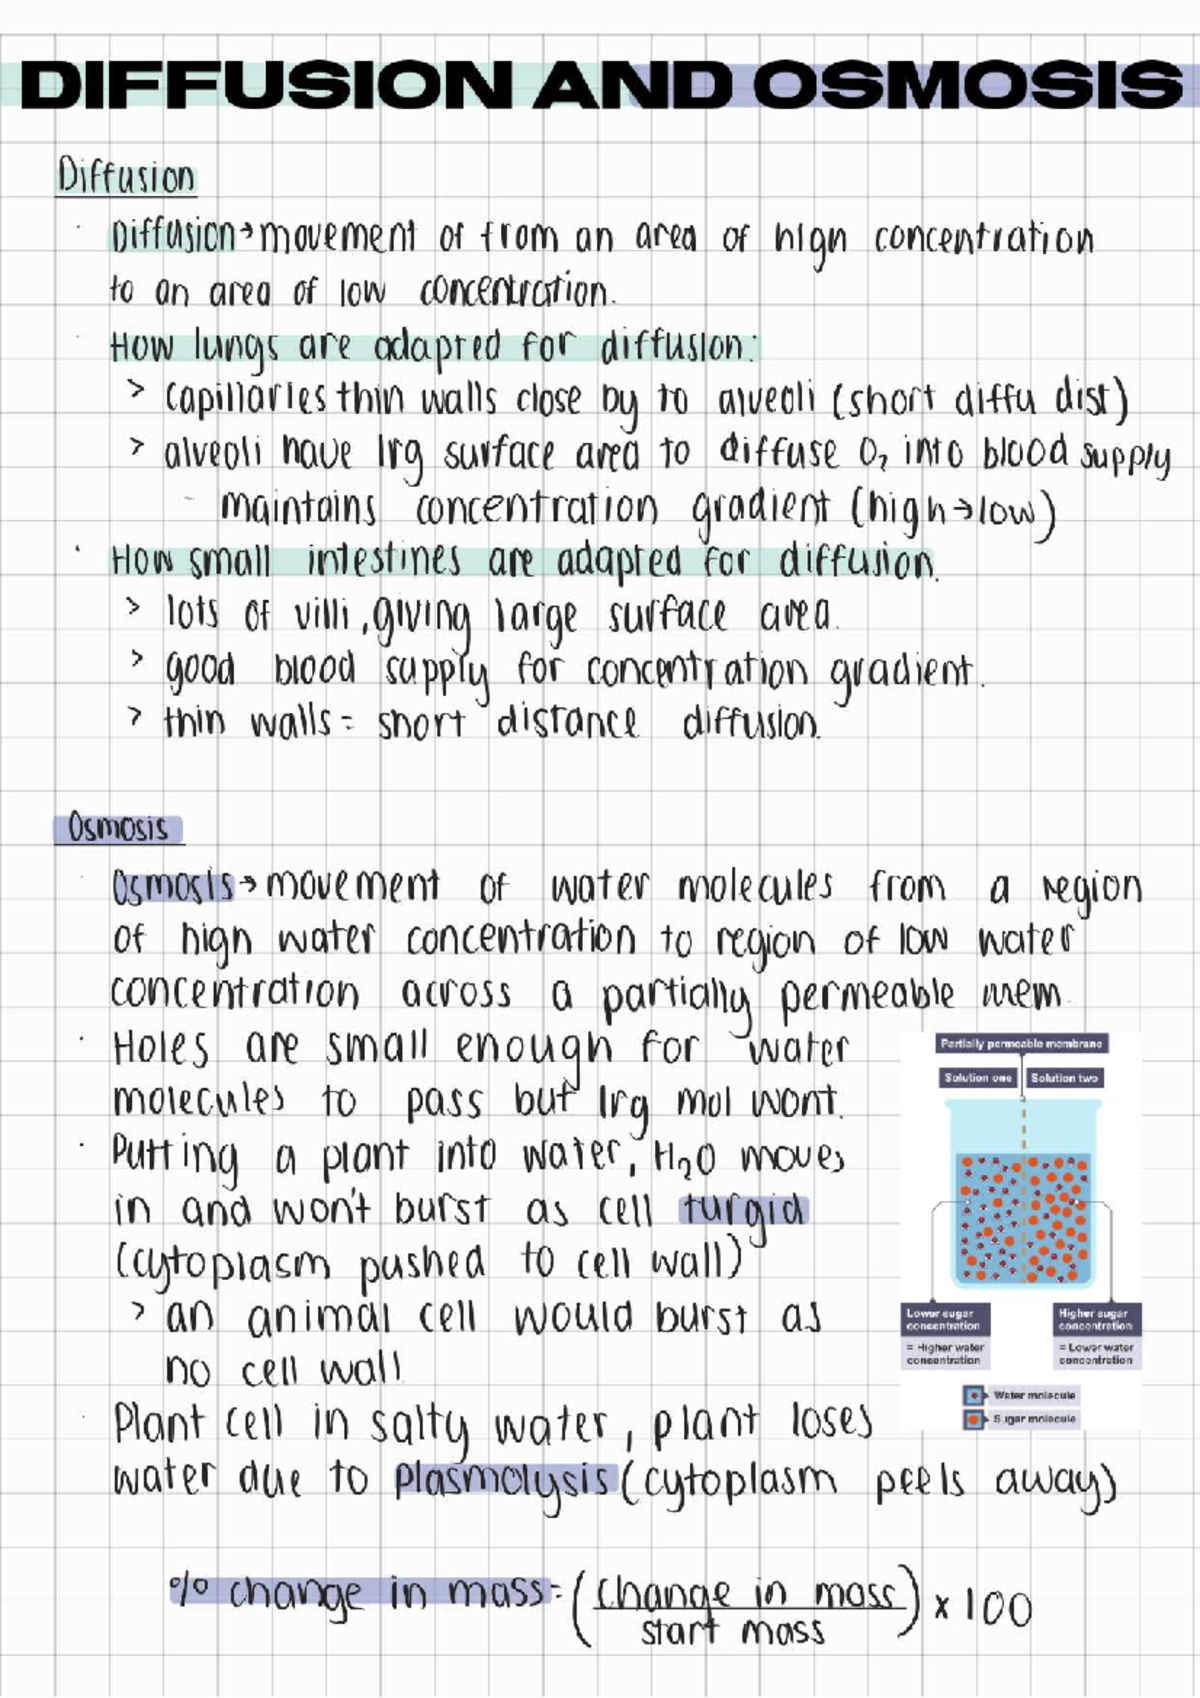 DIFFUSION AND OSMOSIS
Diffusion
· Diffusion→movement of from an area of high concentration
to an area of low concentration.
· How lungs are adapted for diffusion:
> capillaries thin walls close by to alveoli (short diffu dist)
> alveoli have lrg surface area to diffuse O₂ into blood supply
- maintains concentration gradient (high→low)
· How small intestines are adapted for diffusion.
> lots of villi, giving large surface area.
> good blood supply for concentration gradient.
> thin walls = short distance diffusion.
Osmosis
· Osmosis→movement of water molecules from a region
of high water concentration to region of low water
concentration across a partially permeable mem.
· Holes are small enough for water
molecules to pass but lrg mol wont.
· Putting a plant into water, H₂O moves
in and won't burst as cell turgid
(cytoplasm pushed to cell wall)
> an animal cell would burst as
no cell wall
· Plant cell in salty water, plant loses
water due to plasmolysis (cytoplasm peels away)
Partially permeable membrane
Solution one Solution two
Lower sugar
concentration
= Higher water
concentration
Higher sugar
concentration
= Lower water
concentration
Water molecule
Sugar molecule
% change in mass = (change in mass
start mass) x 100